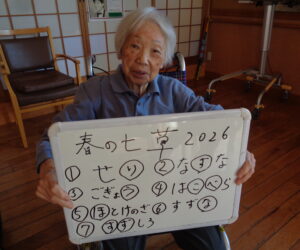 春の七草 2026
① せり ② なずな
③ ごぎょう ④ はこべら
⑤ ほとけのざ ⑥ すずな
⑦ すずしろ